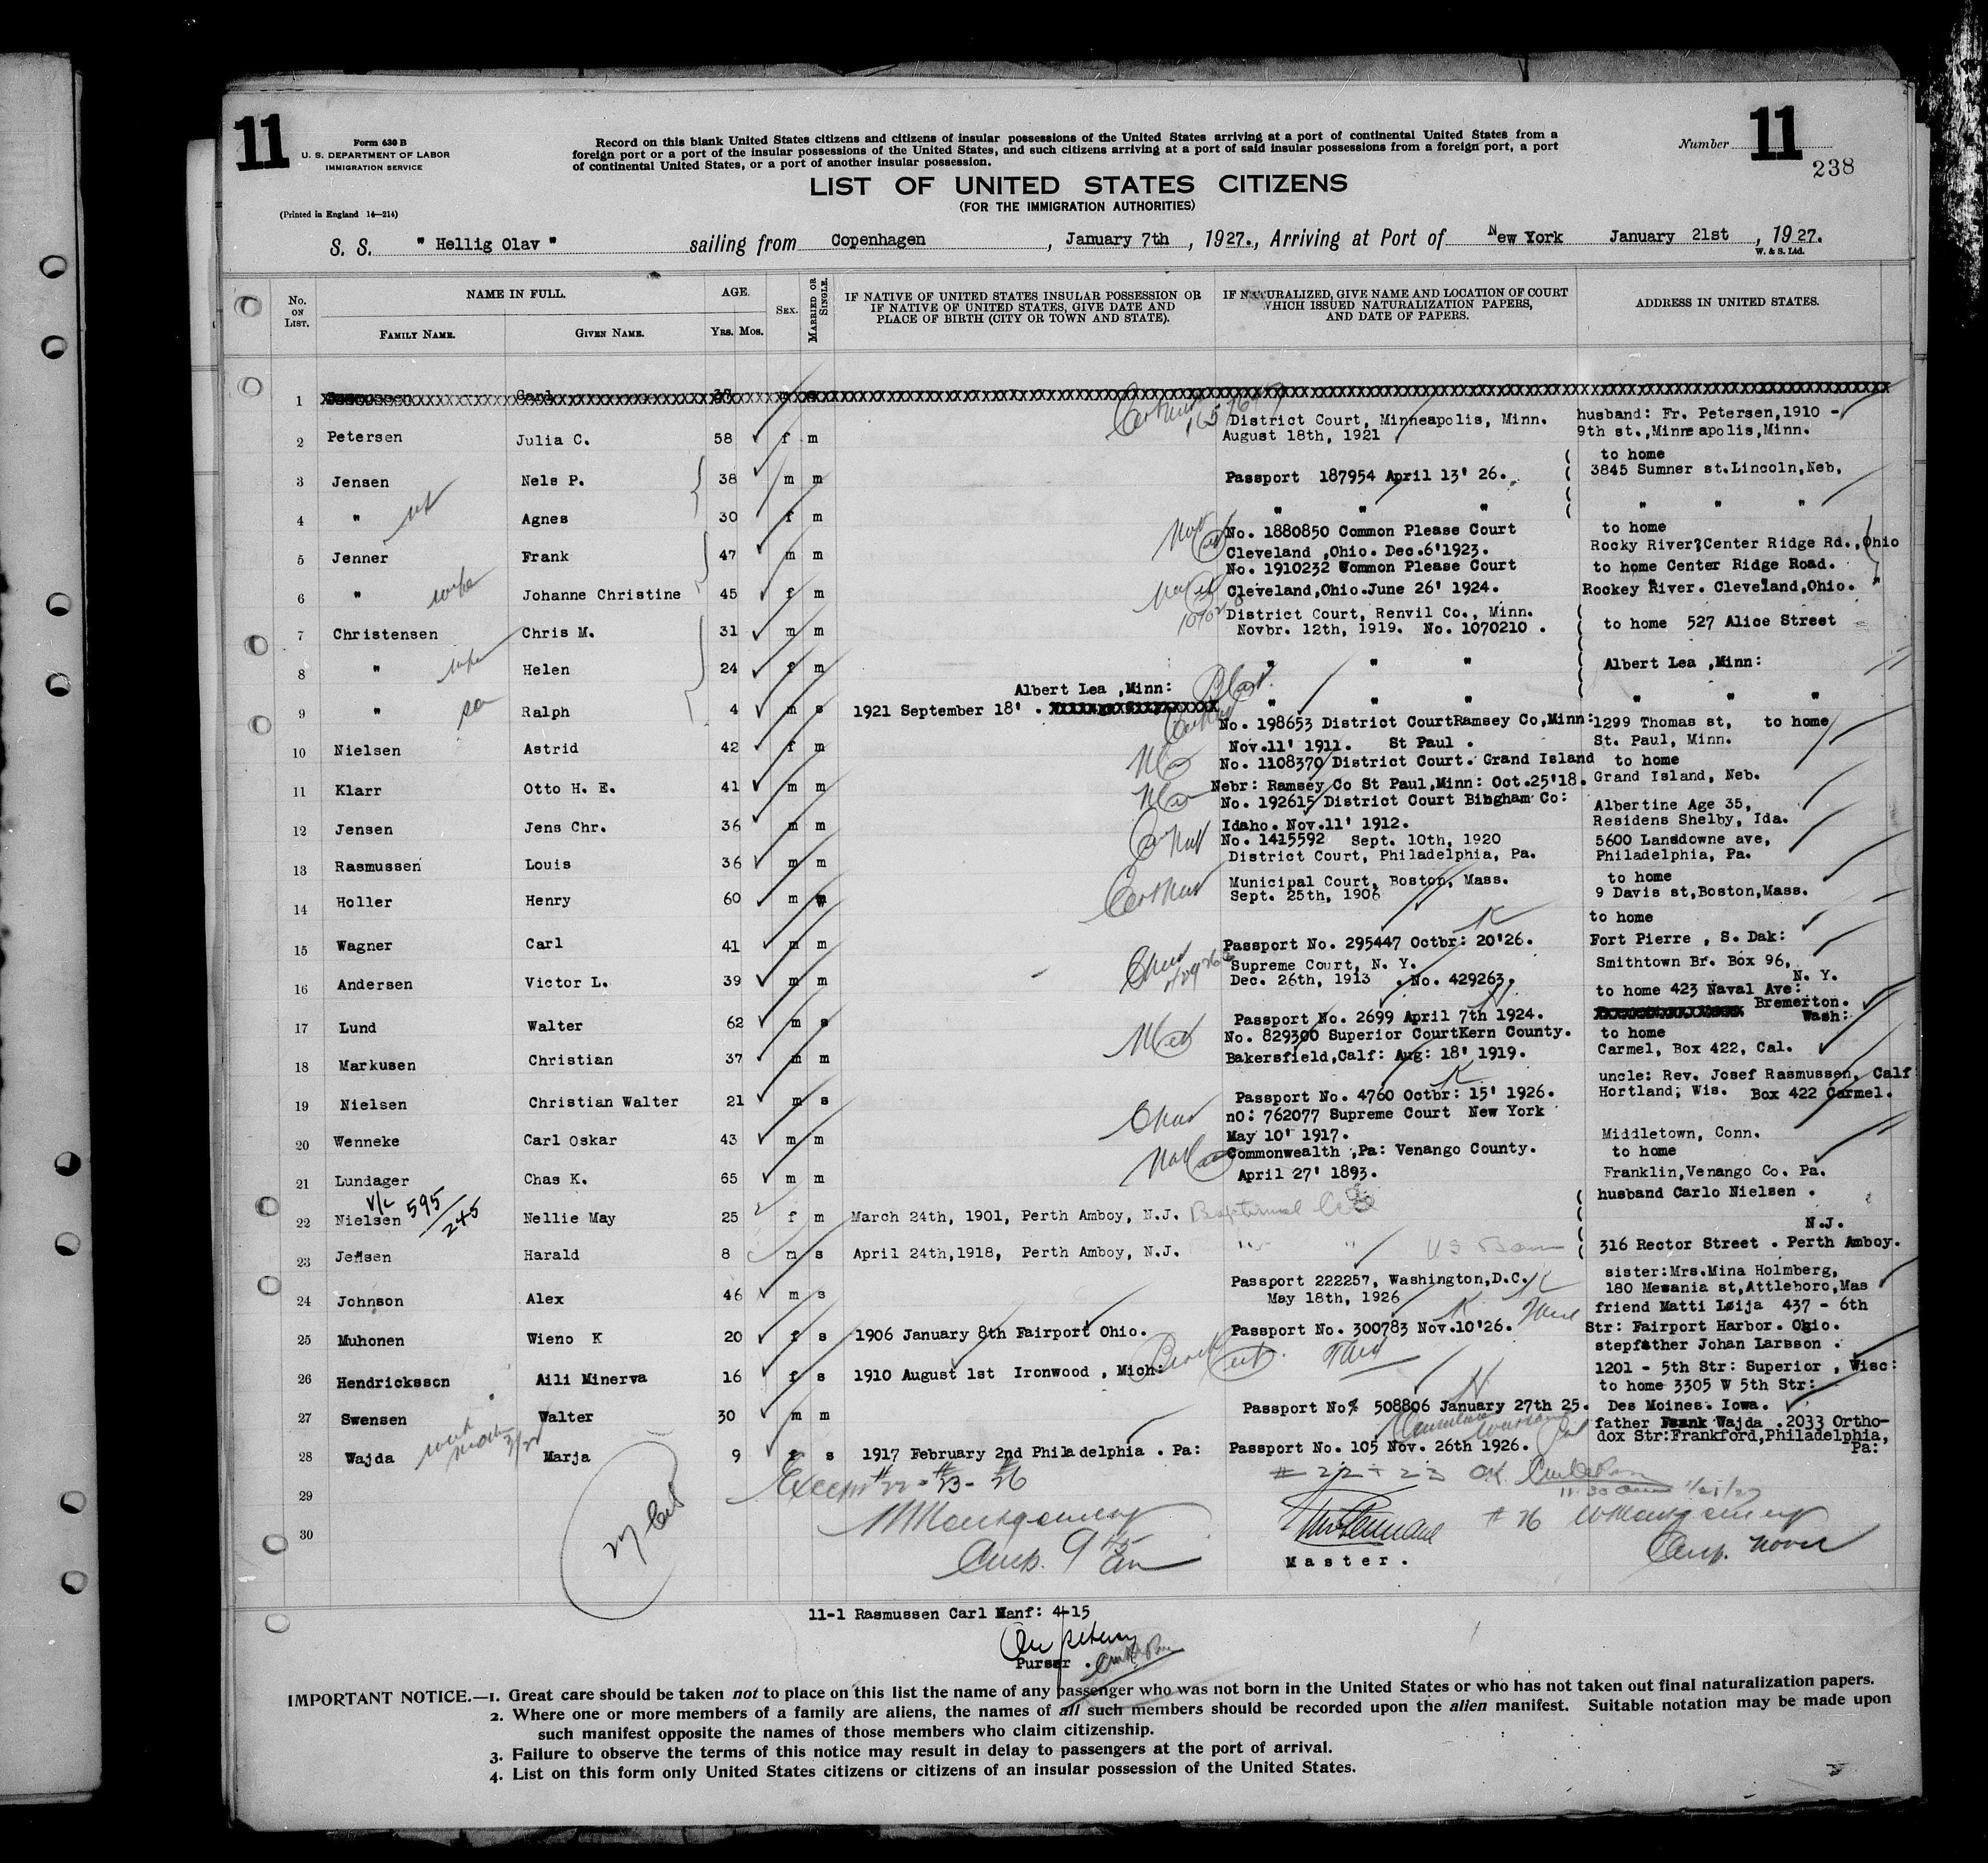 11
Form 630 B
U. S. DEPARTMENT OF LABOR
IMMIGRATION SERVICE
(Printed in England 14—214)
Record on this blank United States citizens and citizens of insular possessions of the United States arriving at a port of continental United States from a
foreign port or a port of the insular possessions of the United States, and such citizens arriving at a port of said insular possessions from a foreign port, a port
of continental United States, or a port of another insular possession.
Number 11
238
LIST OF UNITED STATES CITIZENS
(FOR THE IMMIGRATION AUTHORITIES)
S. S. " Hellig Olav " sailing from Copenhagen , January 7th , 1927., Arriving at Port of New York January 21st , 1927.
W. & S. Ltd.
No. ON LIST. NAME IN FULL. FAMILY NAME. GIVEN NAME. AGE. Yrs. Mos. SEX. MARRIED OR SINGLE. IF NATIVE OF UNITED STATES INSULAR POSSESSION OR IF NATIVE OF UNITED STATES, GIVE DATE AND PLACE OF BIRTH (CITY OR TOWN AND STATE). IF NATURALIZED, GIVE NAME AND LOCATION OF COURT WHICH ISSUED NATURALIZATION PAPERS, AND DATE OF PAPERS. ADDRESS IN UNITED STATES.
1
2 Petersen Julia C. 58 f m District Court, Minneapolis, Minn. August 18th, 1921 husband: Fr. Petersen,1910 - 9th st.,Minneapolis,Minn.
3 Jensen Nels P. 38 m m Passport 187954 April 13' 26. to home 3845 Sumner st.Lincoln,Neb,
4 " Agnes 30 f m " " " " " "
5 Jenner Frank 47 m m No. 1880850 Common Please Court Cleveland ,Ohio. Dec.6'1923. to home Rocky River?Center Ridge Rd.,Ohio
6 " wife Johanne Christine 45 f m No. 1910232 Common Please Court Cleveland,Ohio.June 26' 1924. to home Center Ridge Road. Rockey River. Cleveland,Ohio. "
7 Christensen Chris M. 31 m m District Court, Renvil Co., Minn. Novbr. 12th, 1919. No. 1070210 . to home 527 Alice Street
8 " wife Helen 24 f m " " " Albert Lea ,Minn:
9 " son Ralph 4 m s 1921 September 18' . Albert Lea ,Minn: " " " " " "
10 Nielsen Astrid 42 f m No. 198653 District CourtRamsey Co,Minn: Nov.11' 1911. St Paul . 1299 Thomas st, to home St. Paul, Minn.
11 Klarr Otto H. E. 41 m m No. 1108370 District Court. Grand Island Nebr: Ramsey Co St Paul,Minn: Oct.25'18. to home Grand Island, Neb.
12 Jensen Jens Chr. 36 m m No. 192615 District Court Bingham Co: Idaho. Nov.11' 1912. Albertine Age 35, Residens Shelby, Ida.
13 Rasmussen Louis 36 m m No. 1415592 Sept. 10th, 1920 District Court, Philadelphia, Pa. 5600 Lansdowne ave, Philadelphia, Pa.
14 Holler Henry 60 m Municipal Court, Boston, Mass. Sept. 25th, 1906 to home 9 Davis st,Boston,Mass.
15 Wagner Carl 41 m m Passport No. 295447 Octbr: 20'26. to home Fort Pierre , S. Dak:
16 Andersen Victor L. 39 m m Supreme Court, N. Y. Dec. 26th, 1913 . No. 429263. Smithtown Br. Box 96, N. Y.
17 Lund Walter 62 m s Passport No. 2699 April 7th 1924. to home 423 Naval Ave: Bremerton. Wash:
18 Markusen Christian 37 m m No. 829300 Superior CourtKern County. Bakersfield,Calf: Aug: 18' 1919. to home Carmel, Box 422, Cal.
19 Nielsen Christian Walter 21 m s Passport No. 4760 Octbr: 15' 1926. uncle: Rev. Josef Rasmussen, Calf Hortland; Wis. Box 422 Carmel.
20 Wenneke Carl Oskar 43 m m nO: 762077 Supreme Court New York May 10' 1917. Middletown, Conn.
21 Lundager Chas K. 65 m m Commonwealth ,Pa: Venango County. April 27' 1893. to home Franklin,Venango Co. Pa.
595/245
22 Nielsen Nellie May 25 f m March 24th, 1901, Perth Amboy, N.J. Baptismal husband Carlo Nielsen .
23 Jensen Harald 8 m s April 24th,1918, Perth Amboy, N.J. US Born N.J. 316 Rector Street . Perth Amboy.
24 Johnson Alex 46 m s Passport 222257, Washington,D.C. May 18th, 1926 sister:Mrs.Mina Holmberg, 180 Mesania st,Attleboro,Mas
25 Muhonen Wieno K 20 f s 1906 January 8th Fairport Ohio. Passport No. 300783 Nov.10'26. friend Matti Loija 437 - 6th Str: Fairport Harbor. Ohio.
26 Hendricksson Aili Minerva 16 f s 1910 August 1st Ironwood , Mich: stepfather Johan Larsson . 1201 - 5th Str: Superior , Wisc:
27 Swensen Walter 30 m m Passport No% 508806 January 27th 25. to home 3305 W 5th Str: Des Moines. Iowa.
28 Wajda with mother Marja 9 f s 1917 February 2nd Philadelphia . Pa: Passport No. 105 Nov. 26th 1926. father Frank Wajda .2033 Ortho-dox Str:Frankford,Philadelphia, Pa:
29 Except #22 - #23 - #26 # 22 + 23 OK 11 30 am 1/21/27
30 Montgomery # 26 Montgomery
Insp. 9 45 am Insp. noon
Master.
11-1 Rasmussen Carl Manf: 4-15
Purser .
IMPORTANT NOTICE.—1. Great care should be taken not to place on this list the name of any passenger who was not born in the United States or who has not taken out final naturalization papers.
2. Where one or more members of a family are aliens, the names of all such members should be recorded upon the alien manifest. Suitable notation may be made upon
such manifest opposite the names of those members who claim citizenship.
3. Failure to observe the terms of this notice may result in delay to passengers at the port of arrival.
4. List on this form only United States citizens or citizens of an insular possession of the United States.